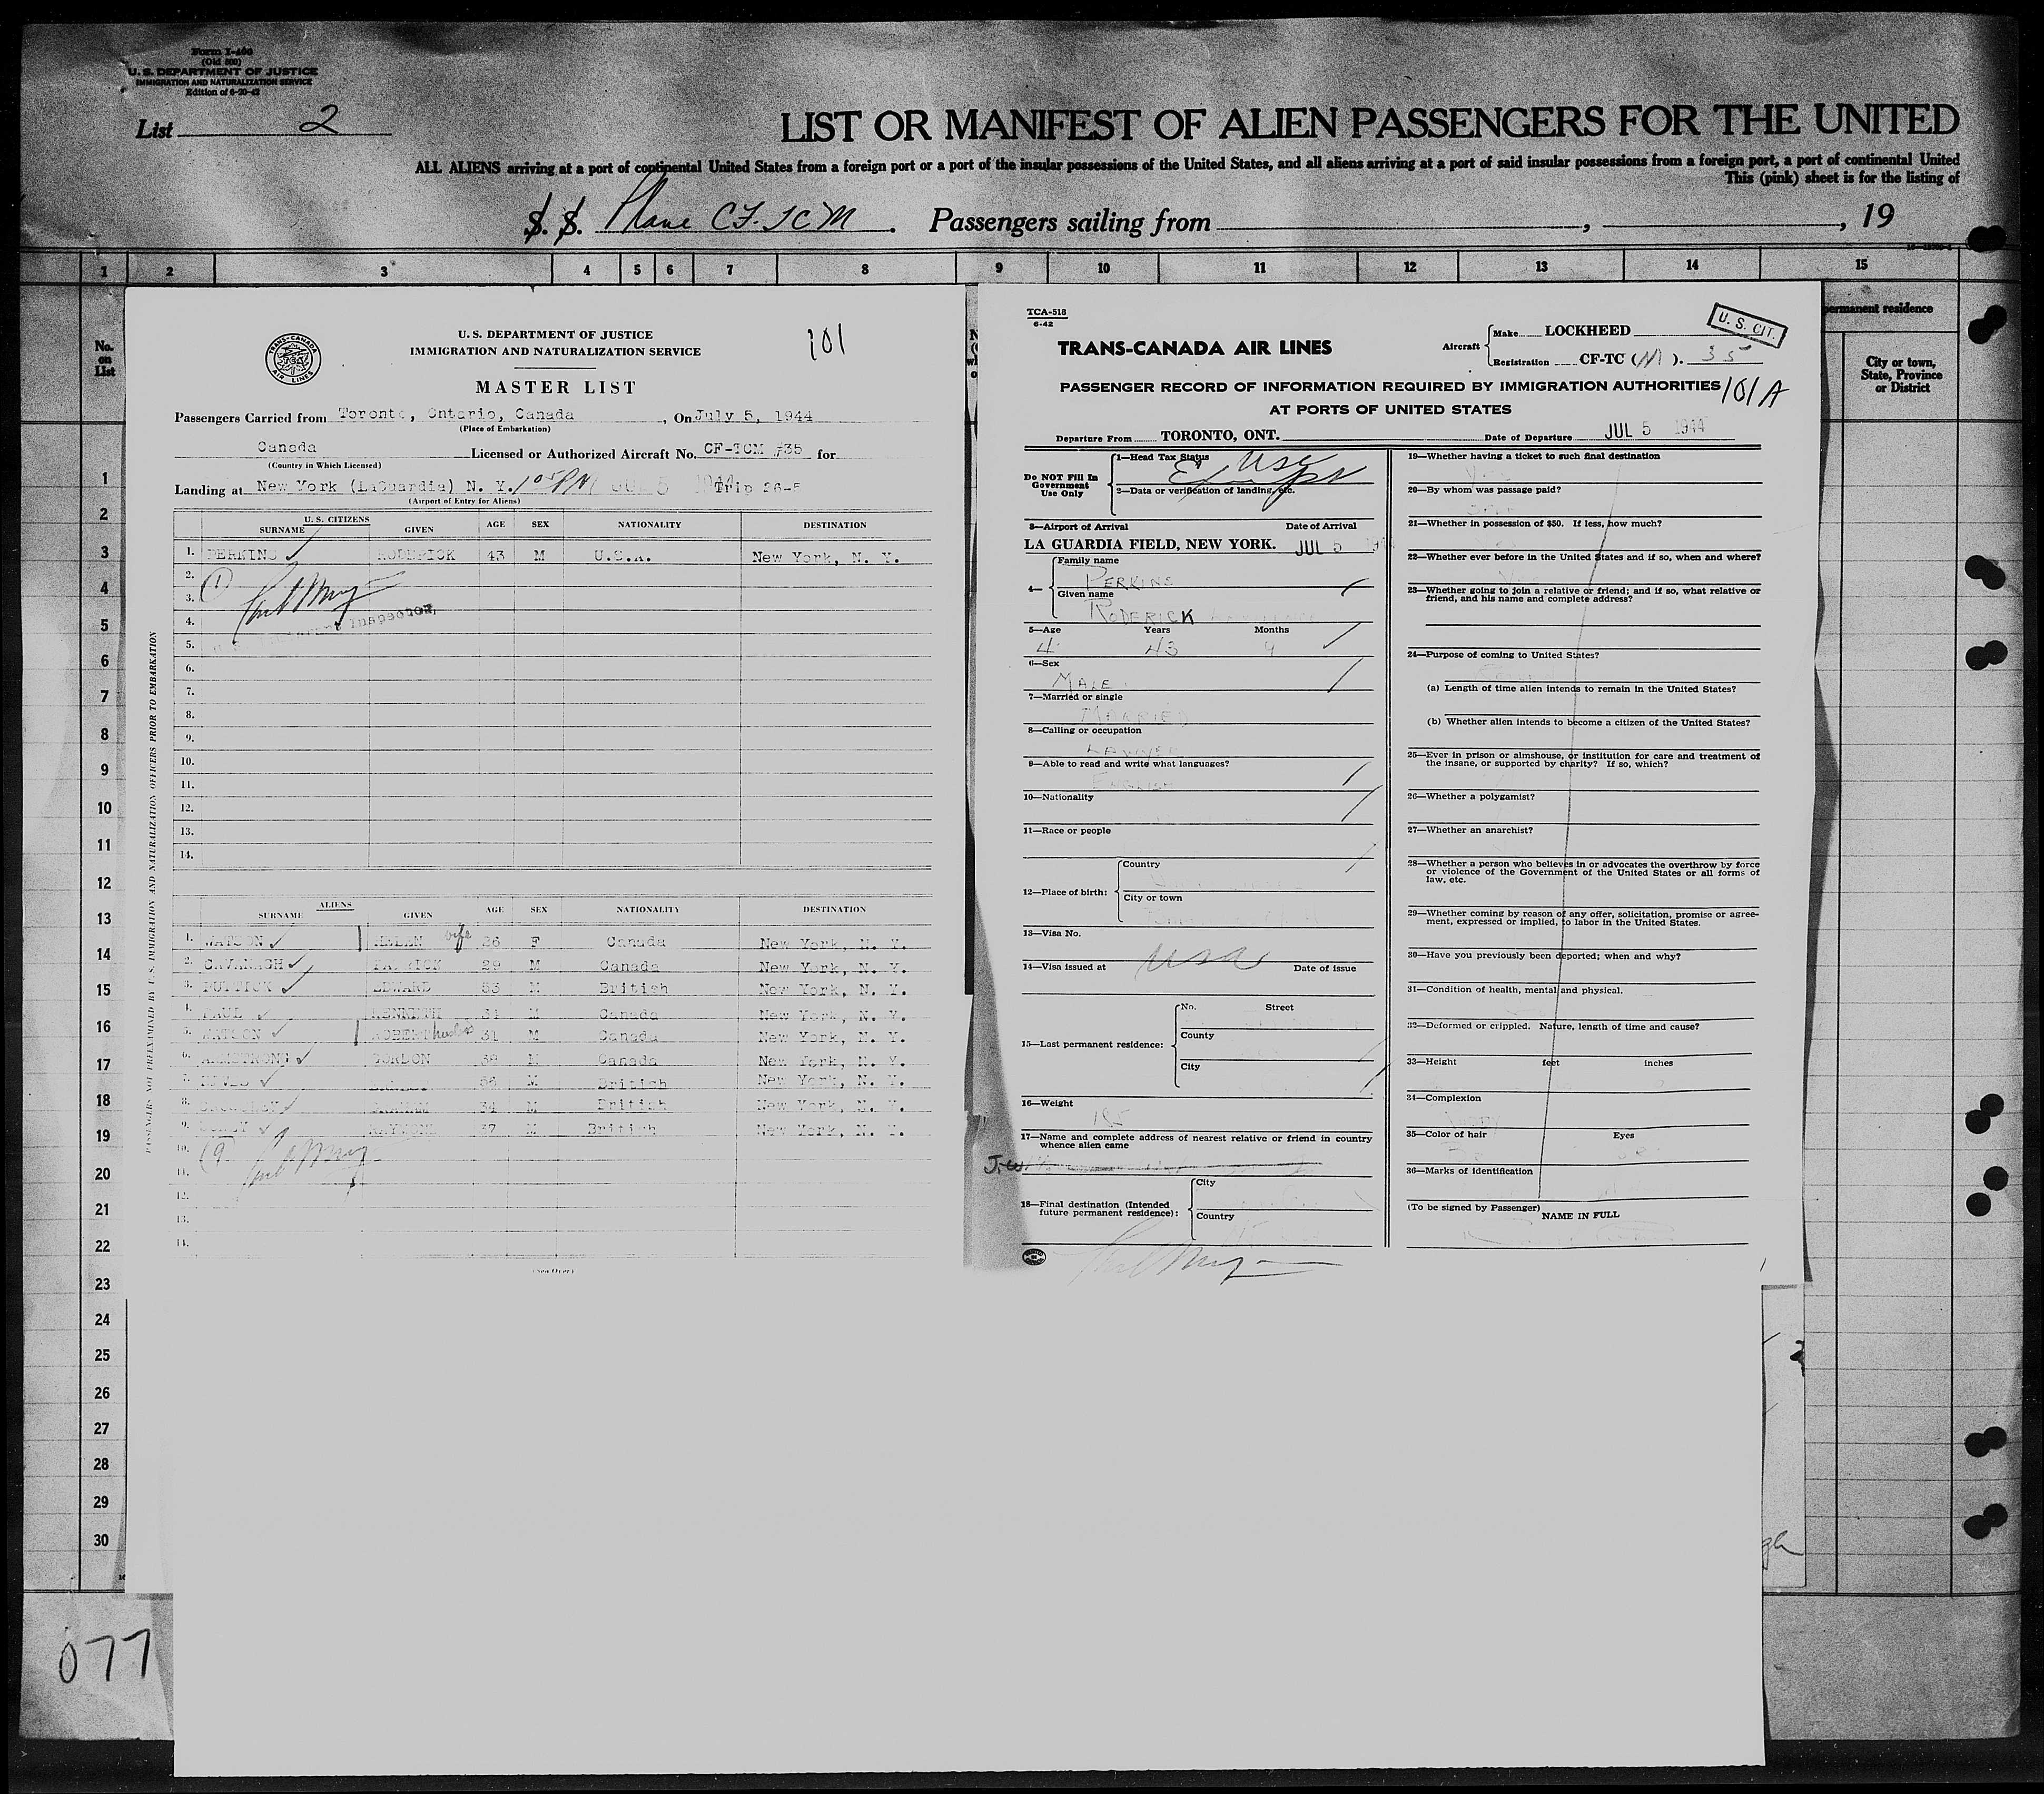 Form I-400
(Old 500)
U. S. DEPARTMENT OF JUSTICE
IMMIGRATION AND NATURALIZATION SERVICE
Edition of 6-20-42
List 2
LIST OR MANIFEST OF ALIEN PASSENGERS FOR THE UNITED
ALL ALIENS arriving at a port of continental United States from a foreign port or a port of the insular possessions of the United States, and all aliens arriving at a port of said insular possessions from a foreign port, a port of continental United
This (pink) sheet is for the listing of
S. S. Plane CF-TCM. Passengers sailing from , , 19
1 2 3 4 5 6 7 8 9 10 11 12 13 14 15
No. on List
permanent residence
City or town, State, Province or District
1
2
3
4
5
6
7
8
9
10
11
12
13
14
15
16
17
18
19
20
21
22
23
24
25
26
27
28
29
30
077
TRANS-CANADA AIR LINES
U. S. DEPARTMENT OF JUSTICE
IMMIGRATION AND NATURALIZATION SERVICE
101
MASTER LIST
Passengers Carried from Toronto, Ontario, Canada, On July 5, 1944
(Place of Embarkation)
Canada Licensed or Authorized Aircraft No. CF-TCM #35 for
(Country in Which Licensed)
Landing at New York (LaGuardia) N. Y. 1 05 PM JUL 5 1944 Trip 26-5
(Airport of Entry for Aliens)
U. S. CITIZENS
SURNAME GIVEN AGE SEX NATIONALITY DESTINATION
1. PERKINS RODERICK 43 M U.S.A. New York, N. Y.
2. (1)
3.
4. Inspector
5.
6.
7.
8.
9.
10.
11.
12.
13.
14.
ALIENS
SURNAME GIVEN AGE SEX NATIONALITY DESTINATION
1. WATSON HELEN wife 26 F Canada New York, N. Y.
2. CAVANAGH PATRICK 29 M Canada New York, N. Y.
3. PUTTICK EDWARD 53 M British New York, N. Y.
4. PAUL KENNETH 31 M Canada New York, N. Y.
5. WATSON ROBERT 31 M Canada New York, N. Y.
6. ARMSTRONG GORDON 39 M Canada New York, N. Y.
7. 56 M British New York, N. Y.
8. GRAHAM 34 M British New York, N. Y.
9. RAYMOND 37 M British New York, N. Y.
10. (9)
11.
12.
13.
14.
(See Over)
PASSENGERS NOT PREEXAMINED BY U.S. IMMIGRATION AND NATURALIZATION OFFICERS PRIOR TO EMBARKATION
TCA-518
6-42
TRANS-CANADA AIR LINES
Aircraft Make LOCKHEED
Registration CF-TC (M). 35
U. S. CIT.
PASSENGER RECORD OF INFORMATION REQUIRED BY IMMIGRATION AUTHORITIES 101A
AT PORTS OF UNITED STATES
Departure From TORONTO, ONT. Date of Departure JUL 5 1944
Do NOT Fill In Government Use Only
1—Head Tax Status USC Exempt
2—Data or verification of landing, etc.
3—Airport of Arrival Date of Arrival
LA GUARDIA FIELD, NEW YORK. JUL 5
4— Family name
PERKINS
Given name
RODERICK
5—Age Years Months
4 43 9
6—Sex
MALE
7—Married or single
MARRIED
8—Calling or occupation
LAWYER
9—Able to read and write what languages?
ENGLISH
10—Nationality
11—Race or people
12—Place of birth: Country
City or town
13—Visa No.
USA
14—Visa issued at Date of issue
15—Last permanent residence: No. Street
County
City
16—Weight
185
17—Name and complete address of nearest relative or friend in country
whence alien came
18—Final destination (Intended future permanent residence): City
Country
19—Whether having a ticket to such final destination
20—By whom was passage paid?
21—Whether in possession of $50. If less, how much?
22—Whether ever before in the United States and if so, when and where?
23—Whether going to join a relative or friend; and if so, what relative or
friend, and his name and complete address?
24—Purpose of coming to United States?
(a) Length of time alien intends to remain in the United States?
(b) Whether alien intends to become a citizen of the United States?
25—Ever in prison or almshouse, or institution for care and treatment of
the insane, or supported by charity? If so, which?
26—Whether a polygamist?
27—Whether an anarchist?
28—Whether a person who believes in or advocates the overthrow by force
or violence of the Government of the United States or all forms of
law, etc.
29—Whether coming by reason of any offer, solicitation, promise or agree-
ment, expressed or implied, to labor in the United States.
30—Have you previously been deported; when and why?
31—Condition of health, mental and physical.
32—Deformed or crippled. Nature, length of time and cause?
33—Height feet inches
34—Complexion
35—Color of hair Eyes
36—Marks of identification
(To be signed by Passenger)
NAME IN FULL